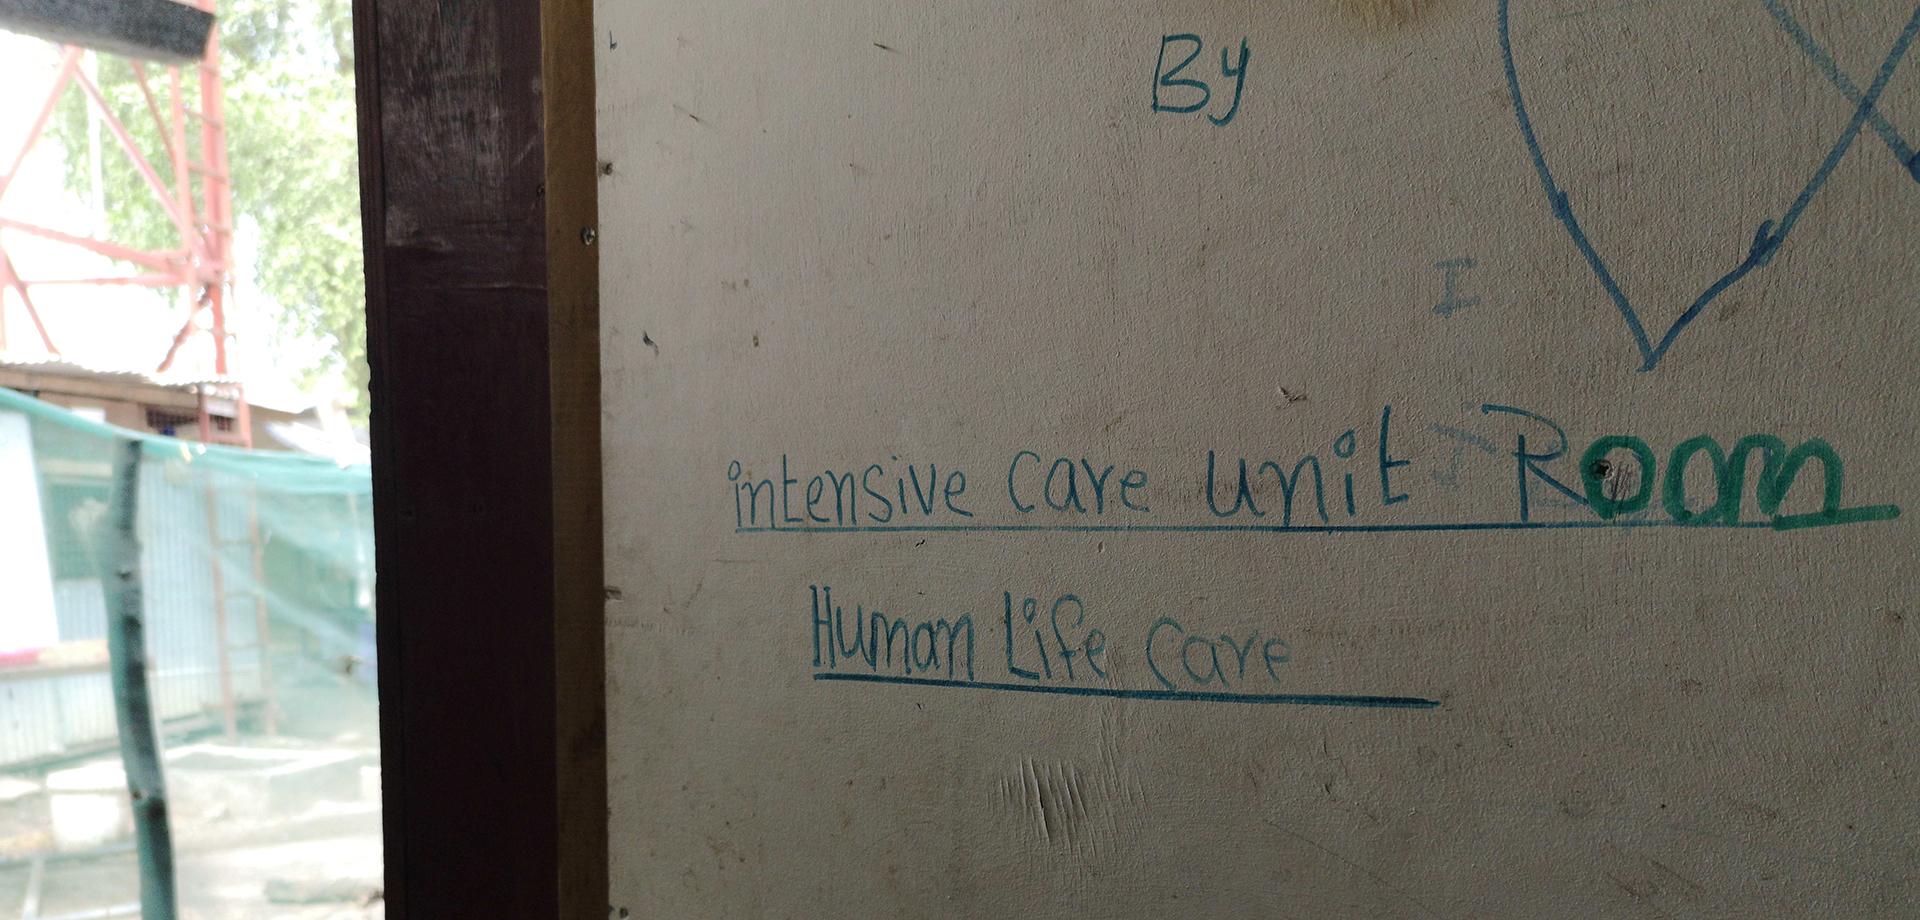 By
I
intensive care unit Room
Human Life care